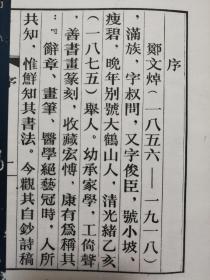 序
鄭文焯（一八五六——一九一八）
，滿族，字叔問，又字俊臣，號小坡、
瘦碧，晚年別號大鶴山人，清光緒乙亥
（一八七五）舉人。幼承家學，工倚聲
，善書畫篆刻，收藏宏愽，康有爲稱其
：『辭章、畫筆、醫學絕藝冠時，人所
共知，惟鮮知其書法。今觀其自鈔詩稿